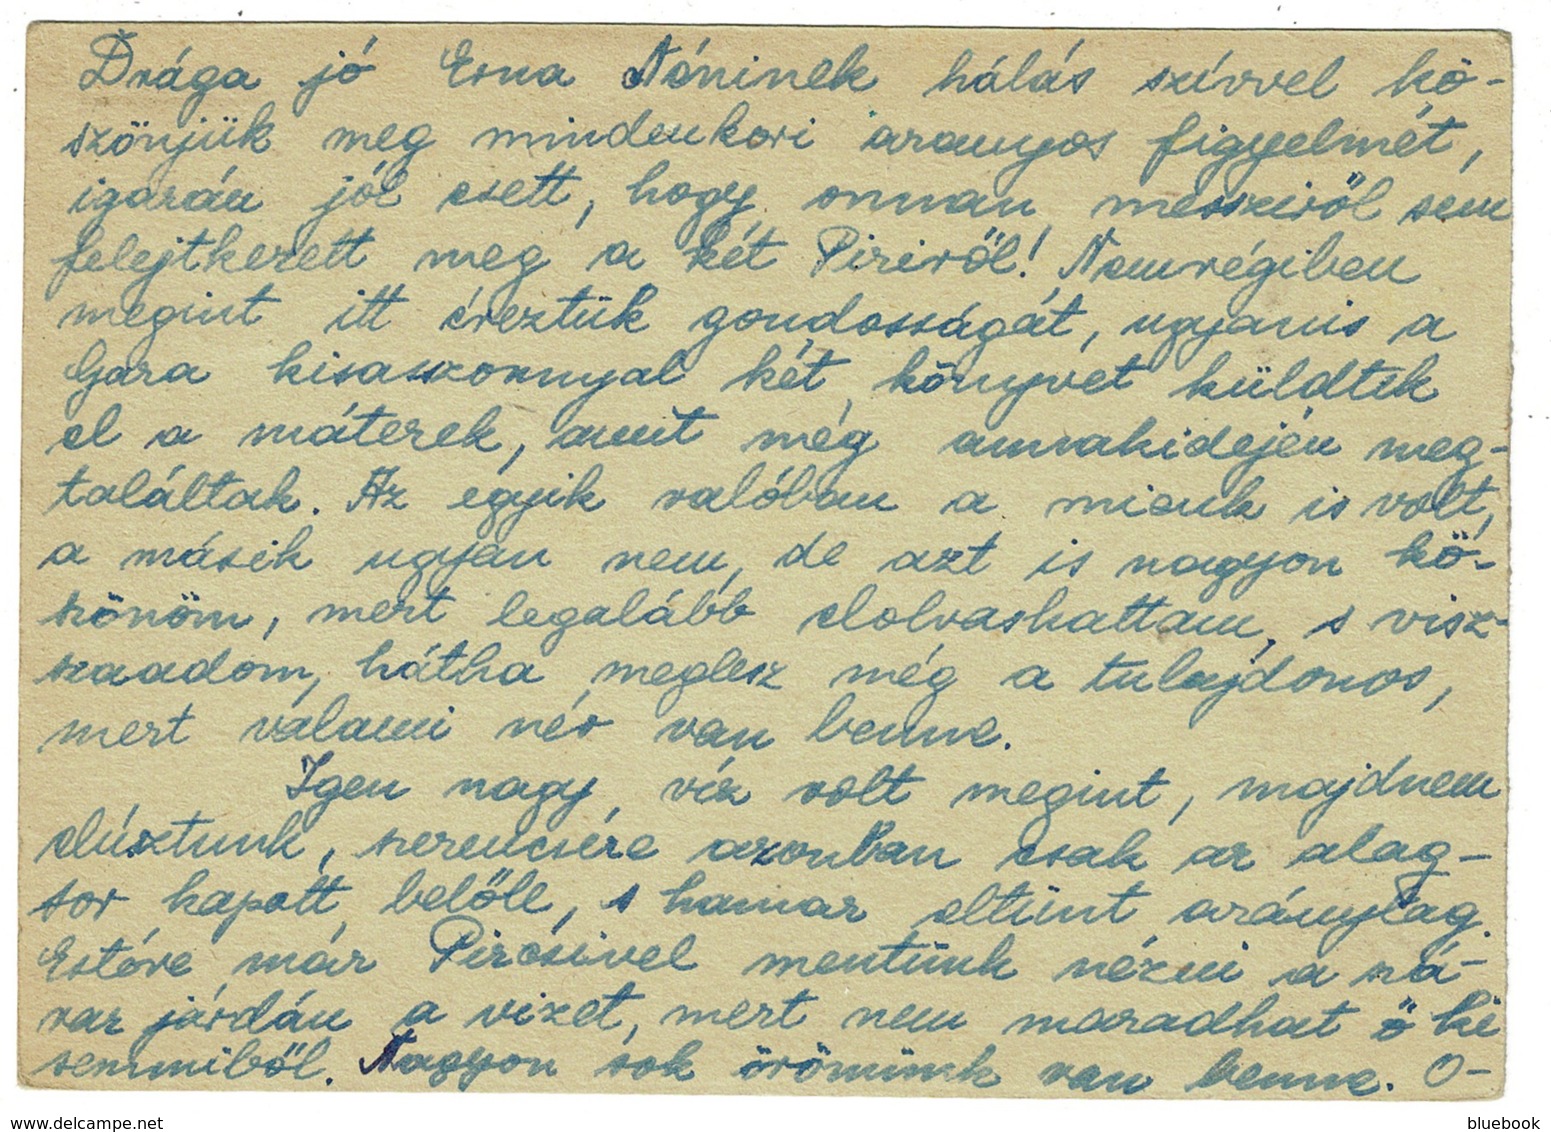 Drága jó Erna Nóninek hálás szívvel kö-
szönjük meg mindenkori aranyos figyelmét,
igazán jól esett, hogy onnan messziről sem
felejtkezett meg a két Piriről! Nemrégiben
megint itt éreztük gondosságát, ugyanis a
Gara kisasszonnyal két könyvet küldtek
el a máterek, amit még annakidején meg-
találtak. Az egyik valóban a mienk is volt,
a másik ugyan nem, de azt is nagyon kö-
szönöm, mert legalább elolvashattam, s visz-
szaadom, hátha meglesz még a tulajdonos,
mert valami név van benne.
Igen nagy víz volt megint, majdnem
elúsztunk, szerencsére azonban csak az alag-
sor kapott belőle, s hamar eltünt aránylag.
Estére már Pircsivel mentünk nézni a szá-
raz járdán a vizet, mert nem maradhat ő ki
semmiből. Nagyon sok örömünk van benne. O-
bluebook